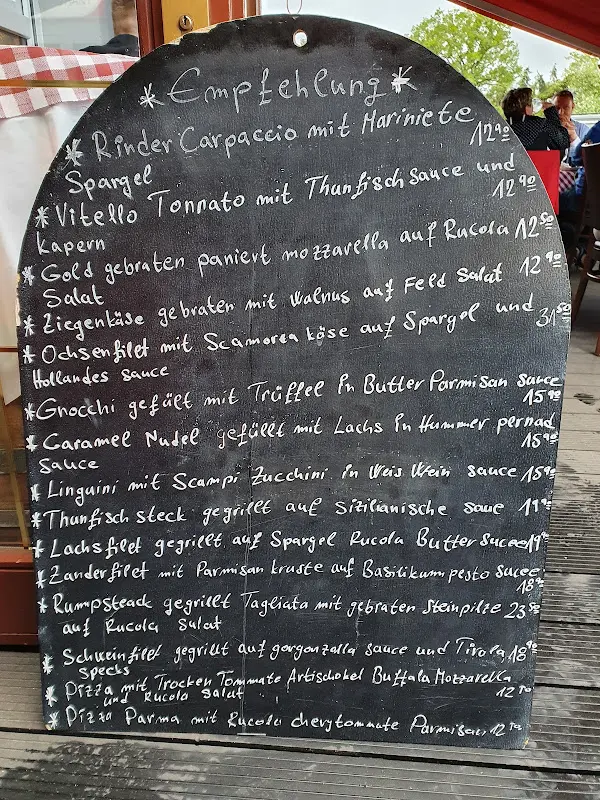 * Empfehlung *
* Rinder Carpaccio mit Mariniete 12 90
Spargel
* Vitello Tonnato mit Thunfisch sauce und 12 90
Kapern
* Gold gebraten paniert mozzarella auf Rucola 12 50
Salat
* Ziegenkäse gebraten mit Walnus auf Feld Salat 12 90
* Ochsenfilet mit Scamorea köse auf Spargel und 31 50
Hollandes sauce
* Gnocchi gefült mit Trüffel in Butter Parmisan sauce 15 90
* Caramel Nudel gefüllt mit Lachs in Hummer pernad 15 90
Sauce
* Linguini mit Scampi Zucchini in Weis Wein sauce 15 90
* Thunfisch steck gegrillt auf Sizilianische saue 19 90
* Lachsfilet gegrillt auf Spargel Rucola Butter Sucee 19
* Zanderfilet mit Parmisan kruste auf Basilikum pesto sucee 18
* Rumpsteack gegrillt Tagliata mit gebraten Steinpilze 23 50
auf Rucola Salat
* Schweinfilet gegrillt auf gorgonzalla sauce und Tirola 18 90
Specks
* Pizza mit Trocken Tommate Artischokel Buffala Mozzarella
und Rucola Salat 12 90
* Pizza Parma mit Rucola cherytommate Parmisan 12 90